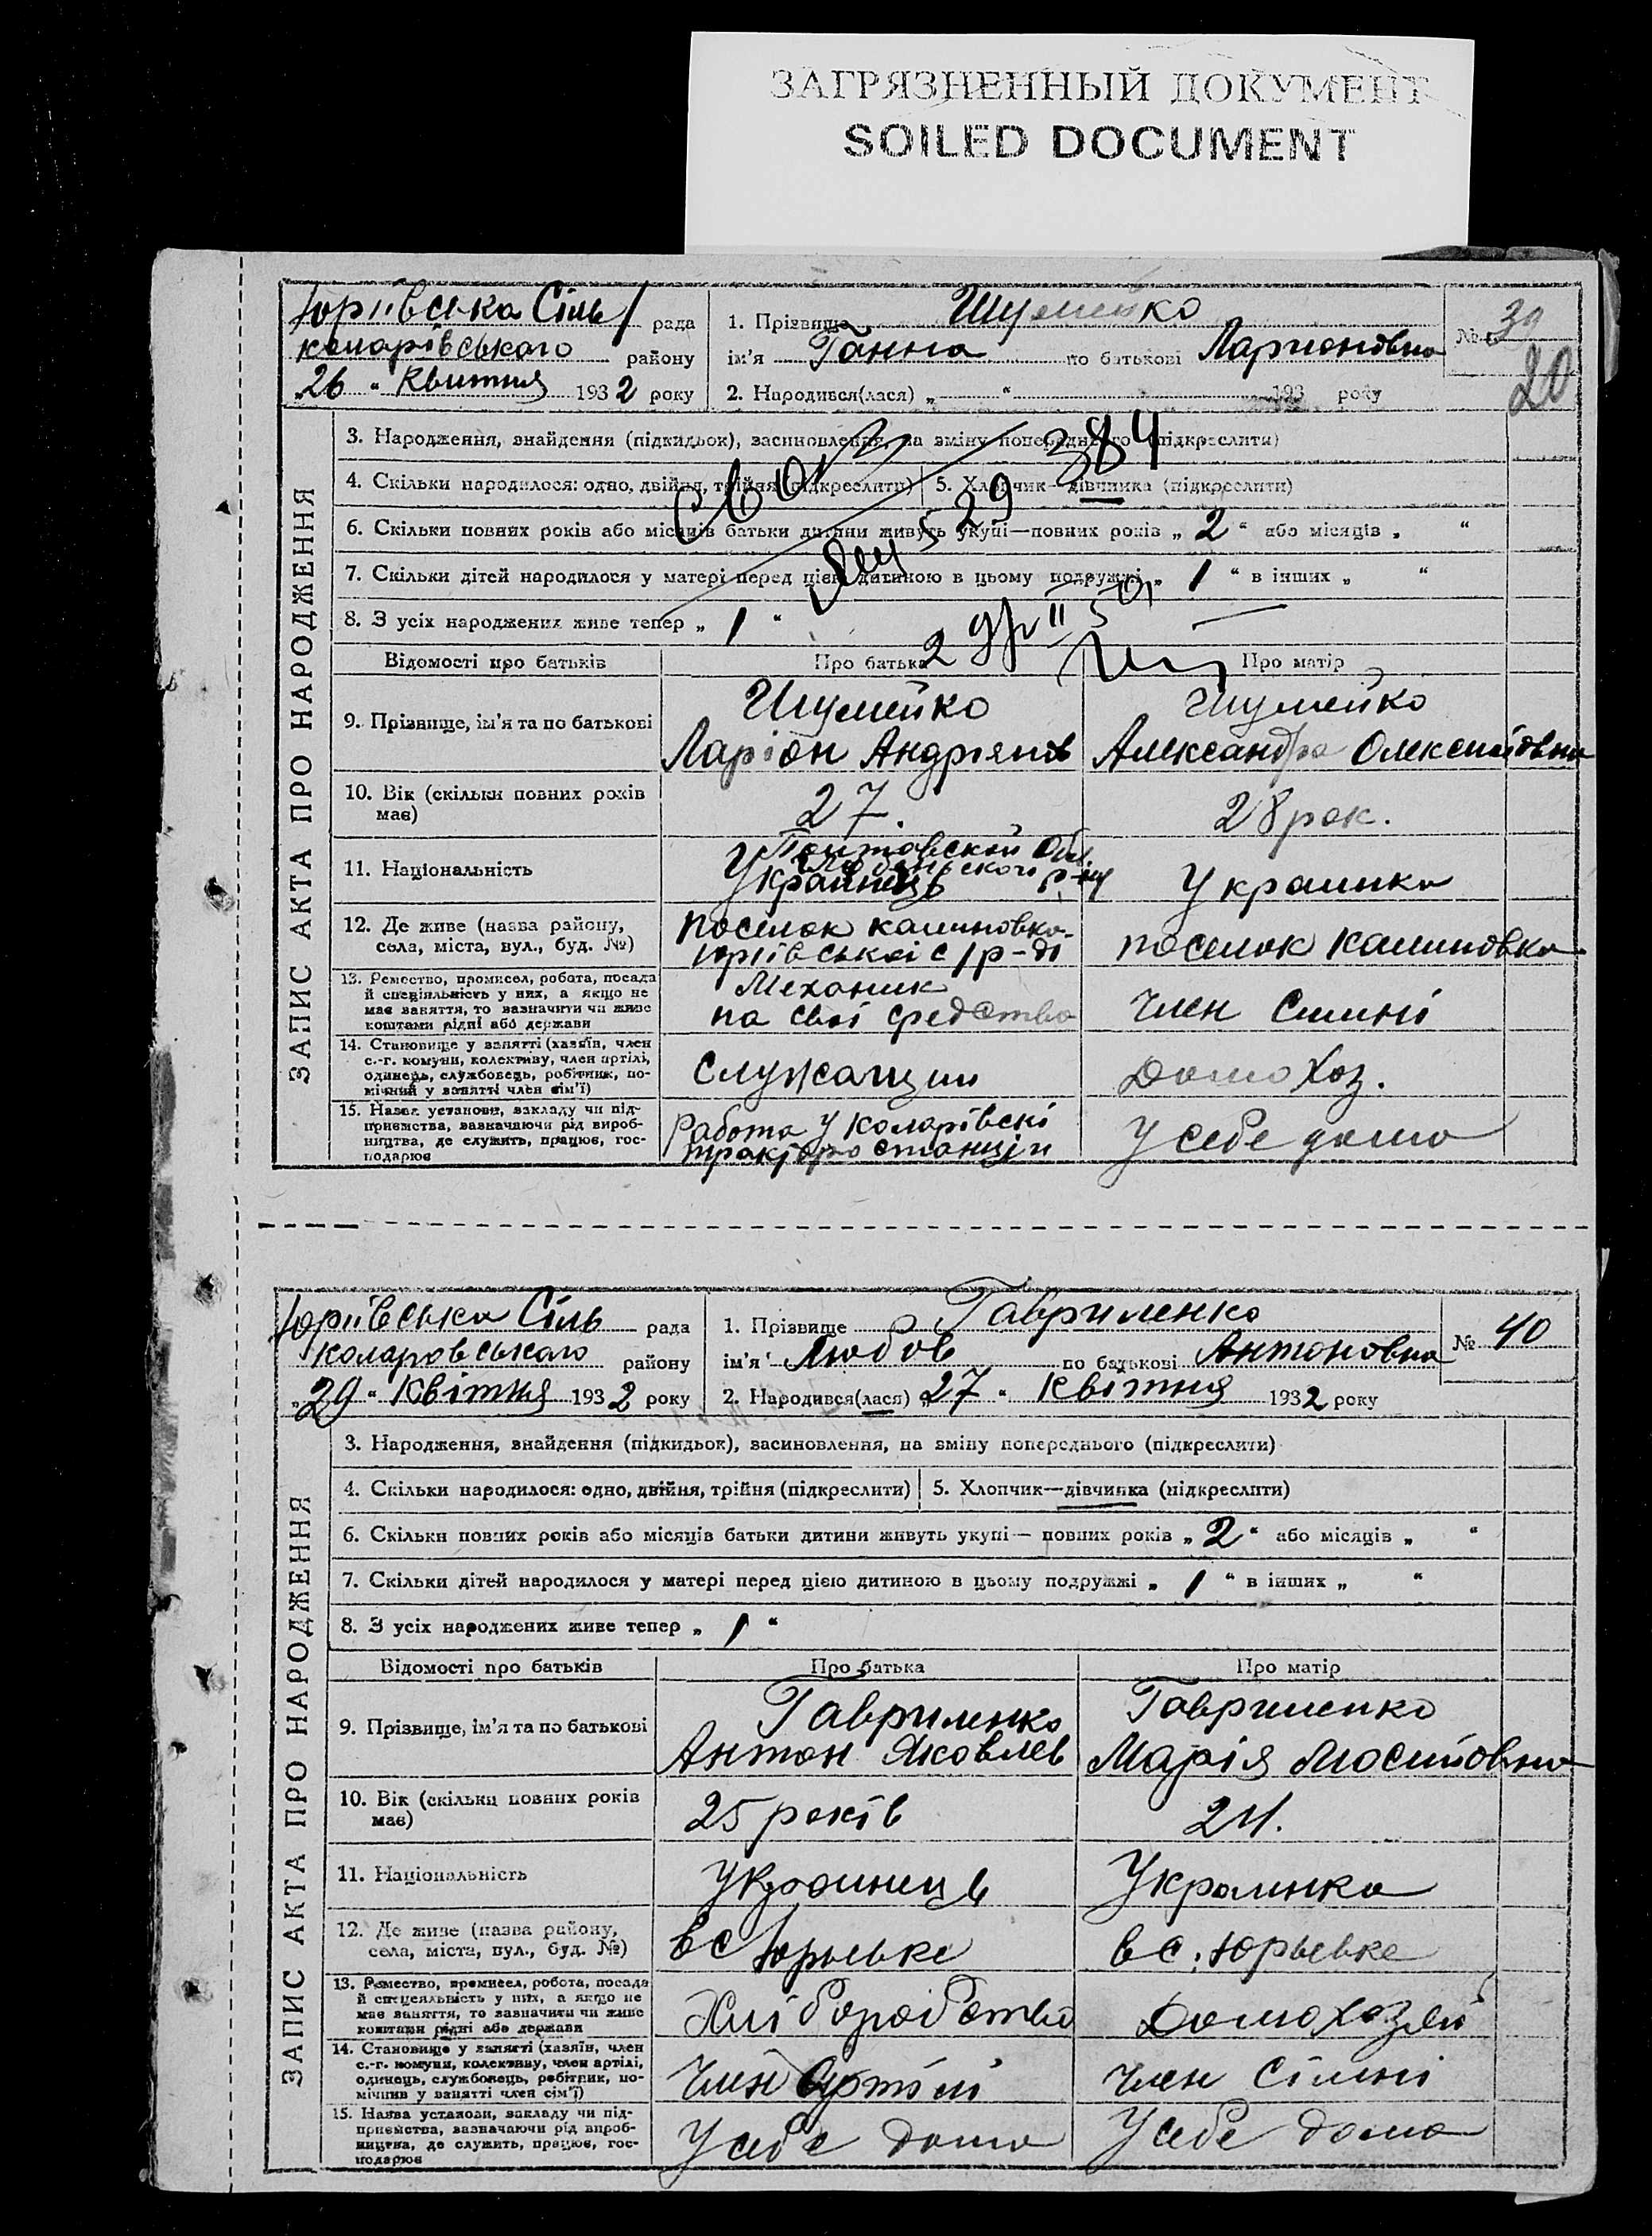 ЗАГРЯЗНЕННЫЙ ДОКУМЕНТ
SOILED DOCUMENT
Юріївська Сіль/ рада
коларівського району
„26 “ Квитня 1932 року
1. Прізвище Шумейко
ім'я Ганна по батькові Ларионовна
2. Народився(лася) „ “ 193 року
№ 39
20
ЗАПИС АКТА ПРО НАРОДЖЕННЯ
3. Народження, знайдення (підкидьок), засиновлення, на зміну попереднього (підкреслити)
384
4. Скільки народилося: одно, двійня, трійня (підкреслити) 5. Хлопчик—дівчинка (підкреслити)
529
6. Скільки повних років або місяців батьки дитини живуть укупі—повних років „ 2 “ або місяців „ “
7. Скільки дітей народилося у матері перед цією дитиною в цьому подружжі „ 1 “ в інших „ “
8. З усіх народжених живе тепер „ 1 “
Відомості про батьків Про батька Про матір
9. Прізвище, ім'я та по батькові
Шумейко
Ларіон Андріянов
Шумейко
Александра Олексийовна
10. Вік (скільки повних років має)
27.
28 рок.
11. Національність
Полтавской Обл.
Украинець
Украинка
12. Де живе (назва району, села, міста, вул., буд. №)
поселок калиновка
юріївської с/р-ді
поселок калиновка
13. Ремество, промисел, робота, посада
й спеціяльність у них, а якщо не
має заняття, то зазначити чи живе
коштами рідні або держави
Механик
на свої средства
Член Симні
14. Становище у занятті (хазяїн, член
с.-г. комуни, колективу, член артілі,
одинець, службовець, робітник, по-
мічний у занятті член сім'ї)
Служащий
Домохоз.
15. Назва установи, закладу чи під-
приємства, зазначаючи рід вироб-
ництва, де служить, працює, гос-
подарює
Работа у коларівскі
тракторо станціи
У себе дома
Юріївська Сіль рада
коларовського району
„29 “ Квітня 1932 року
1. Прізвище Гавриленко
ім'я Любов по батькові Антоновна
2. Народився(лася) „27 “ Квітня 1932 року
№ 40
ЗАПИС АКТА ПРО НАРОДЖЕННЯ
3. Народження, знайдення (підкидьок), засиновлення, на зміну попереднього (підкреслити)
4. Скільки народилося: одно, двійня, трійня (підкреслити) 5. Хлопчик—дівчинка (підкреслити)
6. Скільки повних років або місяців батьки дитини живуть укупі — повних років „ 2 “ або місяців „ “
7. Скільки дітей народилося у матері перед цією дитиною в цьому подружжі „ 1 “ в інших „ “
8. З усіх народжених живе тепер „ 1 “
Відомості про батьків Про батька Про матір
9. Прізвище, ім'я та по батькові
Гавриленко
Антон Яковлев
Гавриленко
Марія Мосийовна
10. Вік (скільки повних років має)
25 років
24.
11. Національність
Украинець
Украинка
12. Де живе (назва району,
села, міста, вул., буд. №)
в с Юрьевке
в с. Юрьевке
13. Ремество, промисел, робота, посада
й спеціяльність у них, а якщо не
має заняття, то зазначити чи живе
коштами рідні або держави
Хліборобство
Домохозяй
14. Становище у занятті (хазяїн, член
с.-г. комуни, колективу, член артілі,
одинець, службовець, робітник, по-
мічник у занятті член сім'ї)
Член Артілі
Член Сімні
15. Назва установи, закладу чи під-
приємства, зазначаючи рід вироб-
ництва, де служить, працює, гос-
подарює
У себе дома
У себе дома